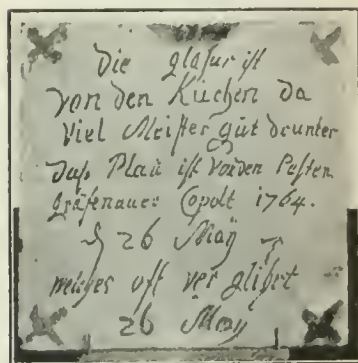 Die glasur ist
von den Kuchen da
Viel Meister gut drunter
das Plau ist von den Pesten
gräfenauer Copolt 1764.
26 Maÿ
welches oft ver glißet
26 Maÿ